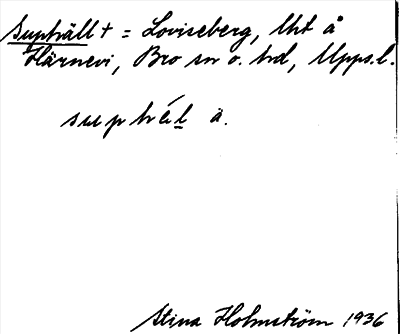 Suphäll + = Loviseberg, lht å
Härnevi, Bro sn o. hd, Upps.l.
suphé̱l ä.
Stina Holmström 1936